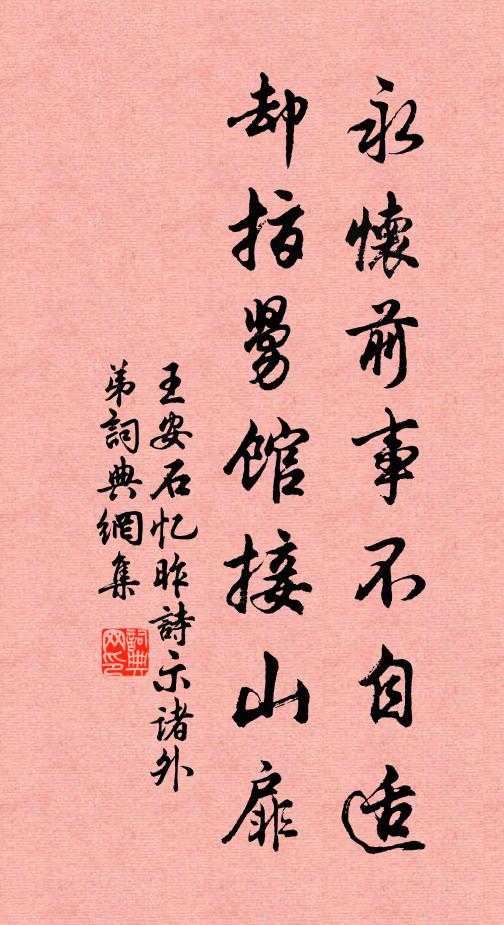 永懷前事不自适
却指舅館接山扉
王安石忆昨詩示诸外
弟詞典網集
詞典
网印